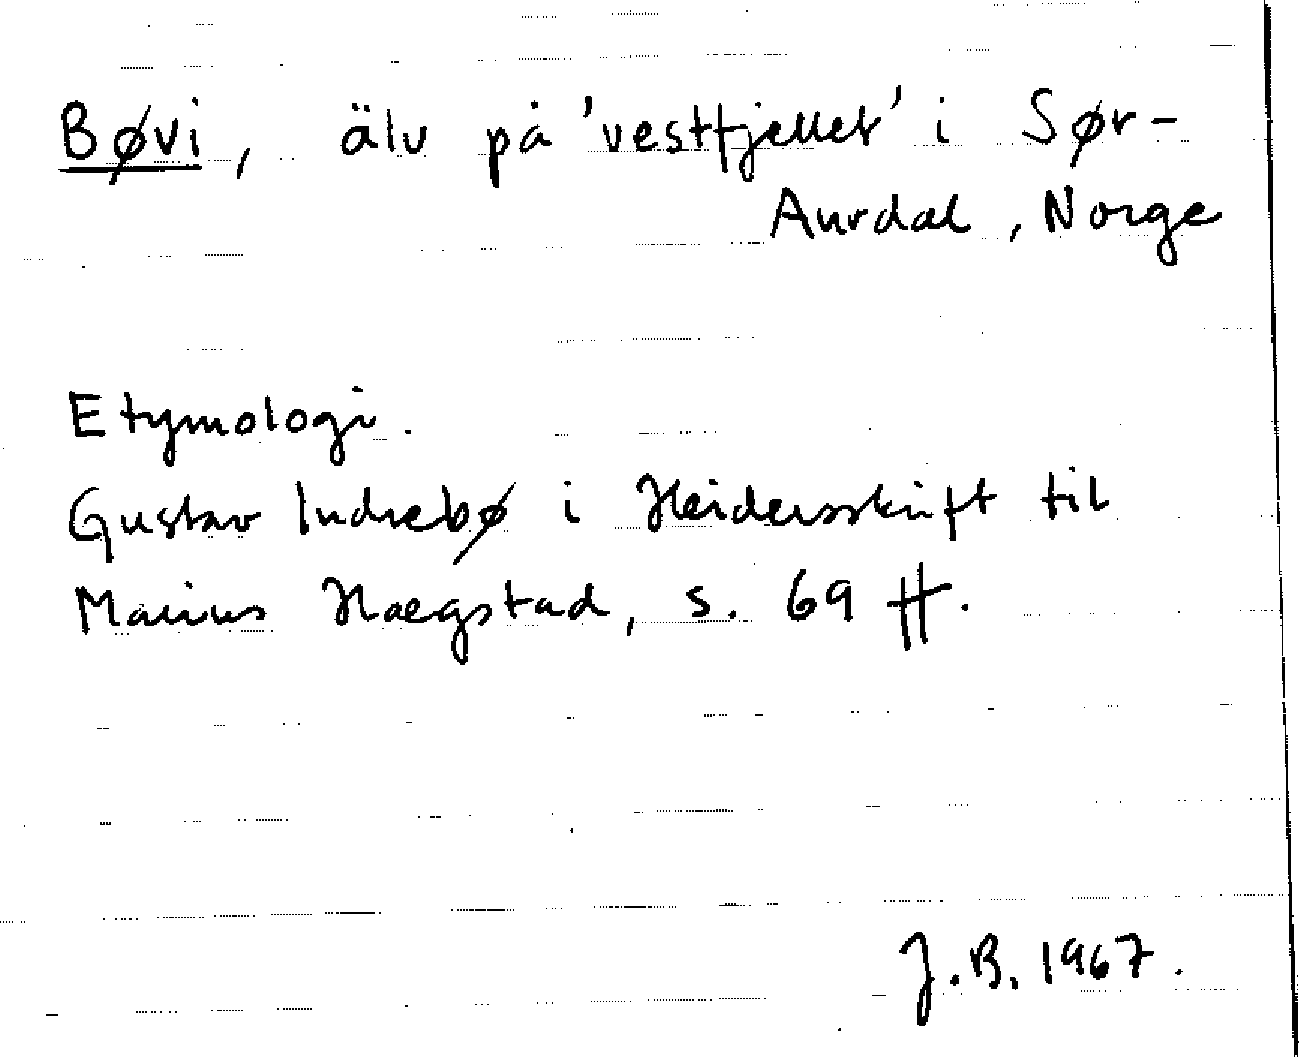 Bøvi, älv på 'vestfjellet' i Sør-
Aurdal, Norge
Etymologi.
Gustav Indrebø i Heidersskrift til
Marius Hægstad, s. 69 ff.
J.B. 1967.